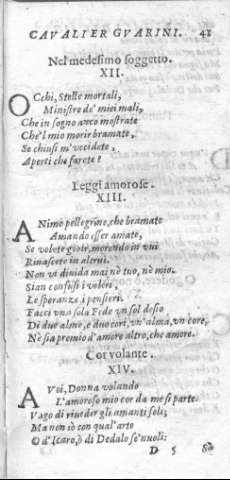 CAVALIER GVARINI. 41
Nel medesimo soggetto.
XII.
OCchi, Stelle mortali,
Ministre de' miei mali,
Che in sogno anco mostrate
Che'l mio morir bramate,
Se chiusi m'vccidete,
Aperti che farete?
Leggi amorose.
XIII.
ANime pellegrine, che bramate
Amando esser amate,
Se volete gioir, morendo in vui
Rinascete in altrui.
Non vi diuida mai nè tuo, nè mio.
Sian confusi i voleri,
Le speranze, i pensieri.
Facci vna sola Fede vn sol desio
Di due alme, e duo cori, vn'alma, vn core,
Nè sia premio d'amore altro, che amore.
Cor volante.
XIV.
A Voi, Donna volando
L'amoroso mio cor da me si parte.
Vago di riueder gli amanti soli;
Ma non iò con qual'arte
O d'Icaro, ò di Dedalo se'nuoli:
D 5